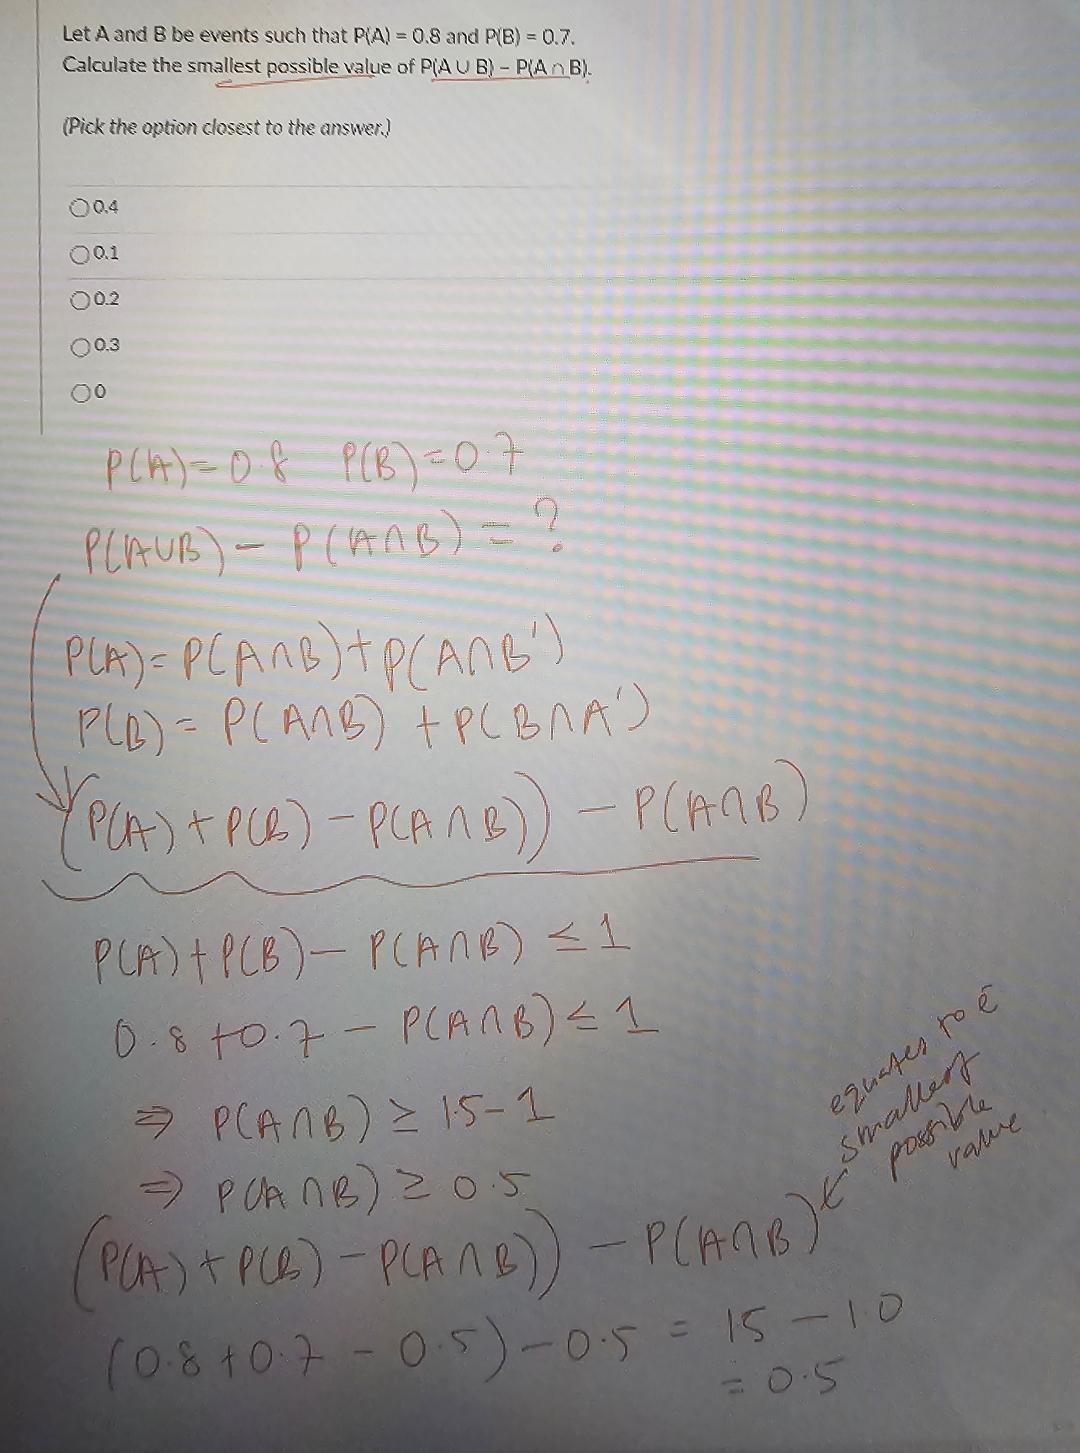 Let A and B be events such that P(A) = 0.8 and P(B) = 0.7.
Calculate the smallest possible value of P(A ∪ B) – P(A ∩ B).
(Pick the option closest to the answer.)
0.4
0.1
0.2
0.3
0
P(A)=0.8 P(B)=0.7
P(A∪B) – P(A∩B) = ?
P(A)= P(A∩B)+P(A∩B')
P(B)= P(A∩B) + P(B∩A')
(P(A)+P(B)–P(A∩B)) – P(A∩B)
P(A)+P(B)– P(A∩B) ≤ 1
0.8+0.7 – P(A∩B) ≤ 1
⇒ P(A∩B) ≥ 1.5–1
⇒ P(A∩B) ≥ 0.5
equates to
smallest
possible
value
(P(A)+P(B)–P(A∩B)) – P(A∩B)
(0.8+0.7 – 0.5) – 0.5 = 15 – 1.0
= 0.5